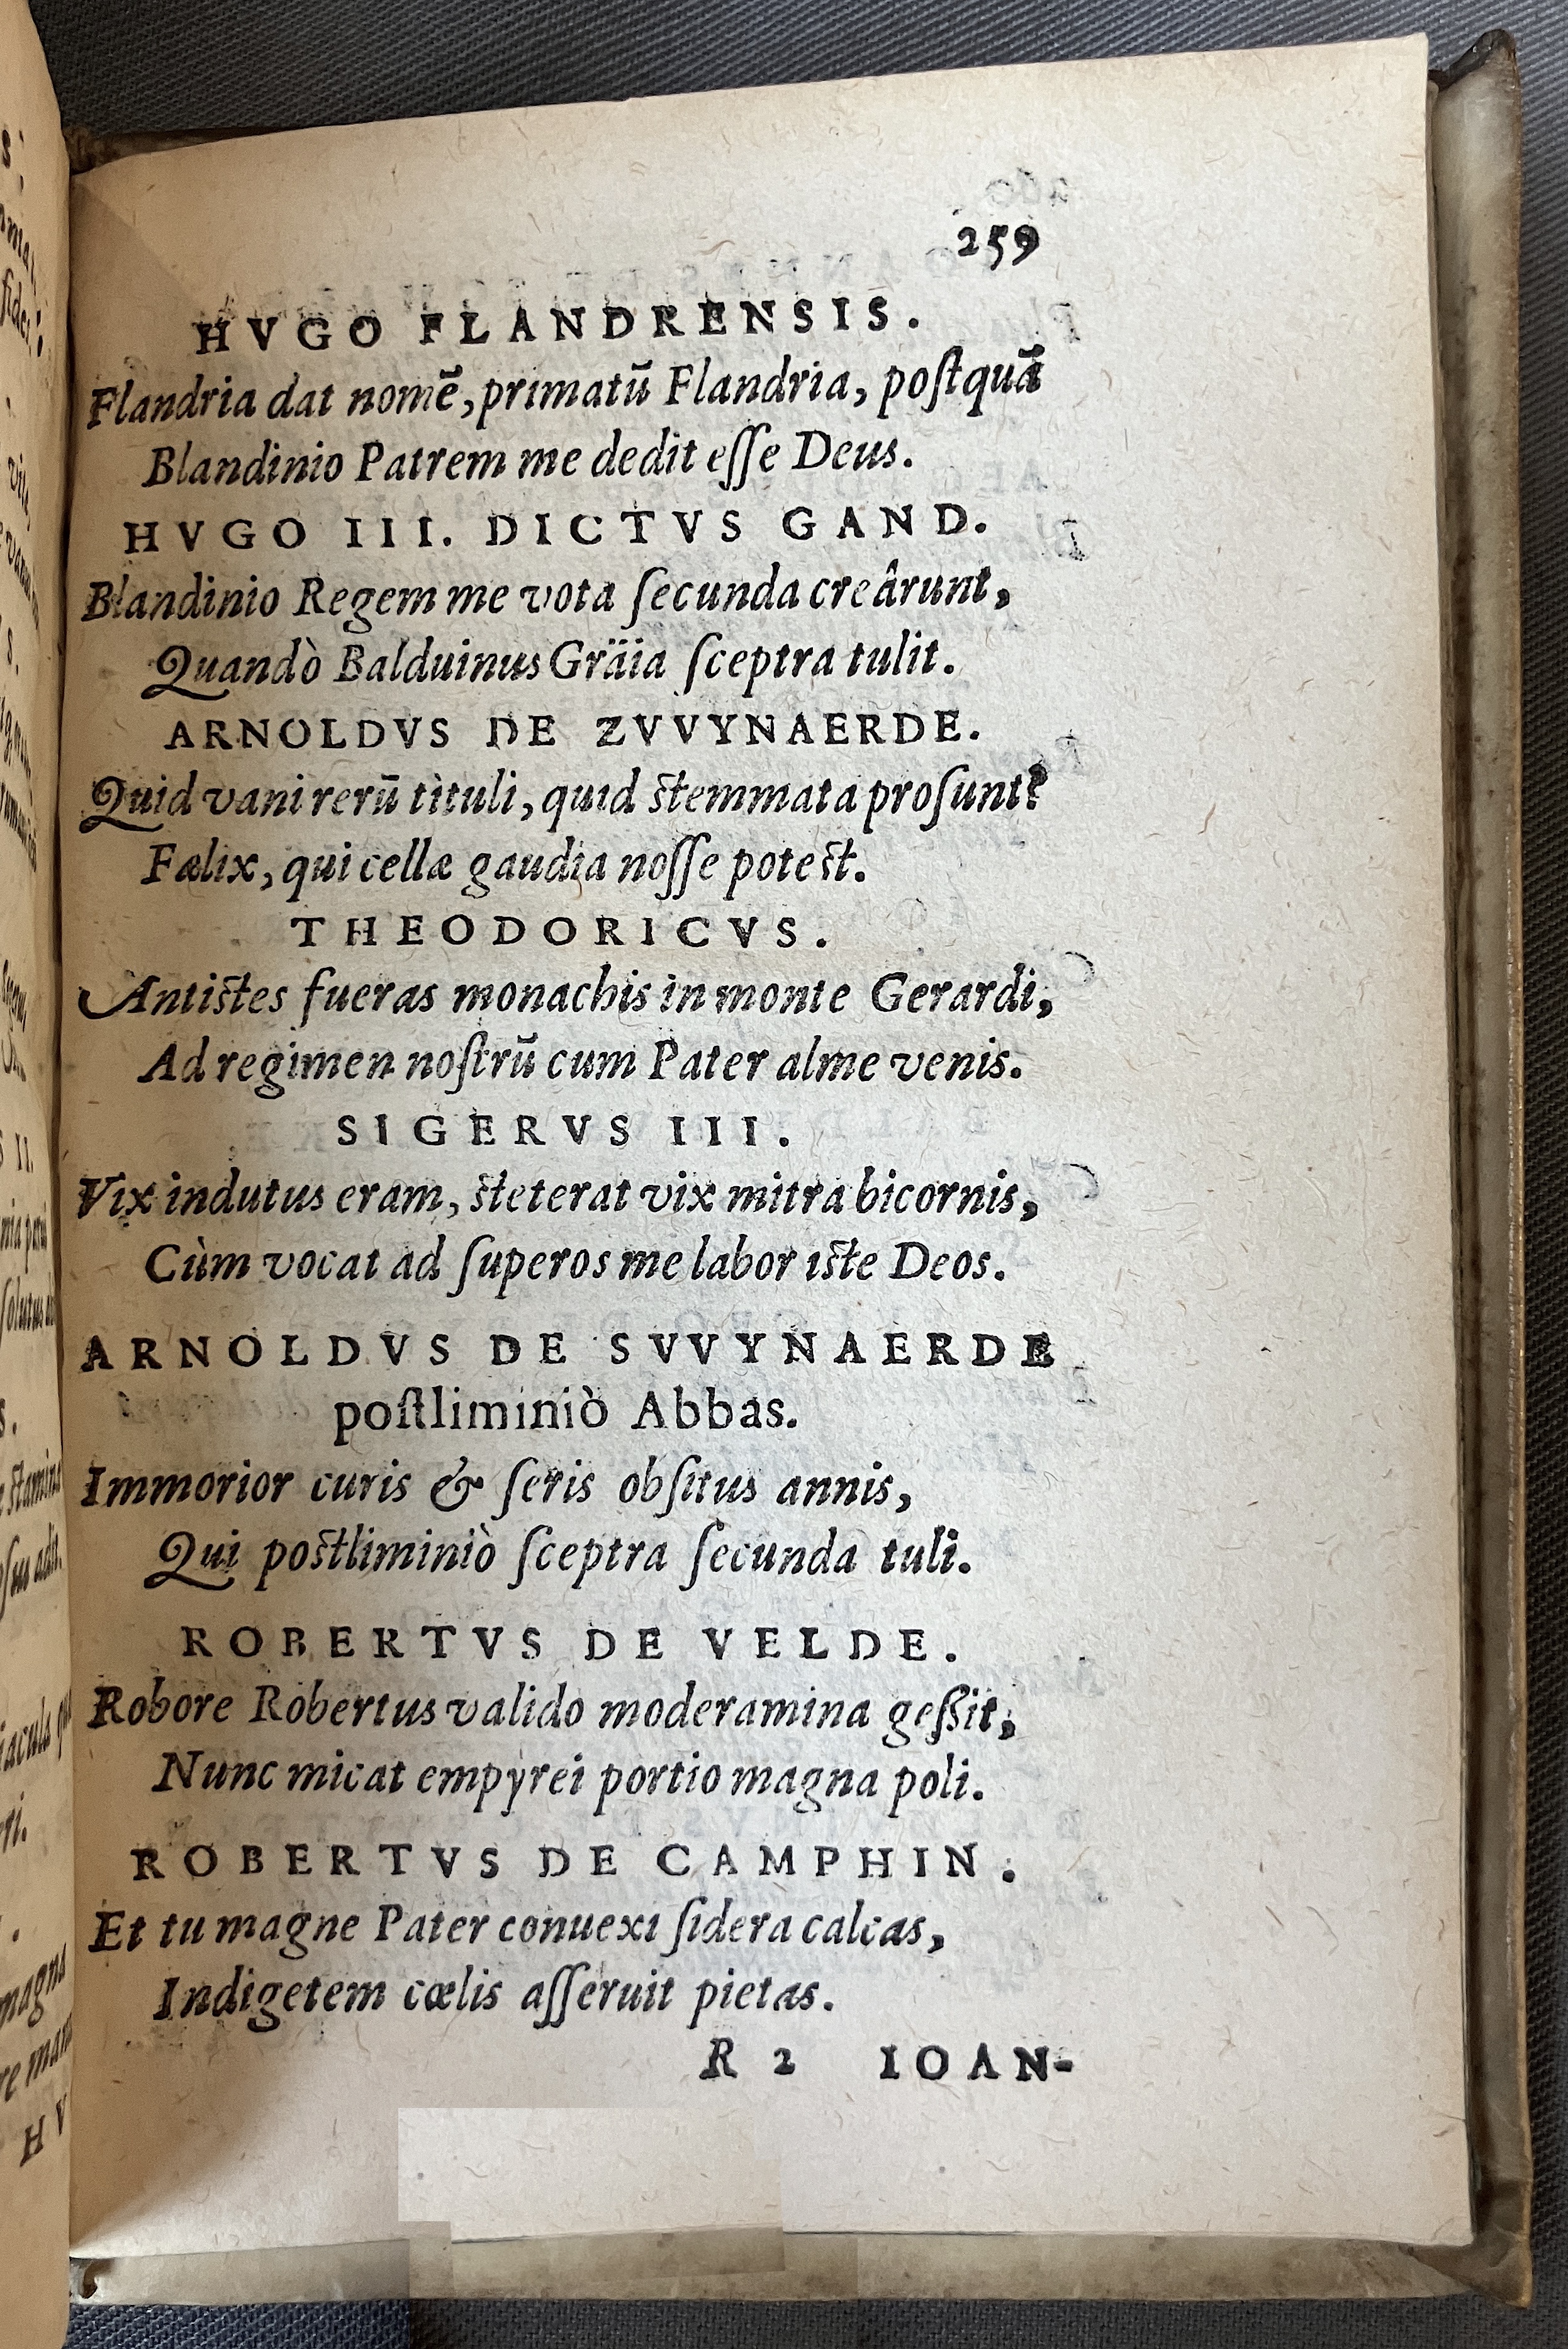 259
HVGO FLANDRENSIS.
Flandria dat nomē, primatū Flandria, poſtquā
Blandinio Patrem me dedit eſſe Deus.
HVGO III. DICTVS GAND.
Blandinio Regem me vota ſecunda creârunt,
Quandò Balduinus Gräia ſceptra tulit.
ARNOLDVS DE ZVVYNAERDE.
Quid vani rerū tituli, quid ſtemmata proſunt?
Fælix, qui cellæ gaudia noſſe poteſt.
THEODORICVS.
Antiſtes fueras monachis in monte Gerardi,
Ad regimen noſtrū cum Pater alme venis.
SIGERVS III.
Vix indutus eram, ſteterat vix mitra bicornis,
Cùm vocat ad ſuperos me labor iſte Deos.
ARNOLDVS DE SVVYNAERDE
poſtliminiò Abbas.
Immorior curis & ſeris obſitus annis,
Qui poſtliminiò ſceptra ſecunda tuli.
ROBERTVS DE VELDE.
Robore Robertus valido moderamina geſſit,
Nunc micat empyrei portio magna poli.
ROBERTVS DE CAMPHIN.
Et tu magne Pater conuexi ſidera calcas,
Indigetem cœlis aſſeruit pietas.
R 2 IOAN-